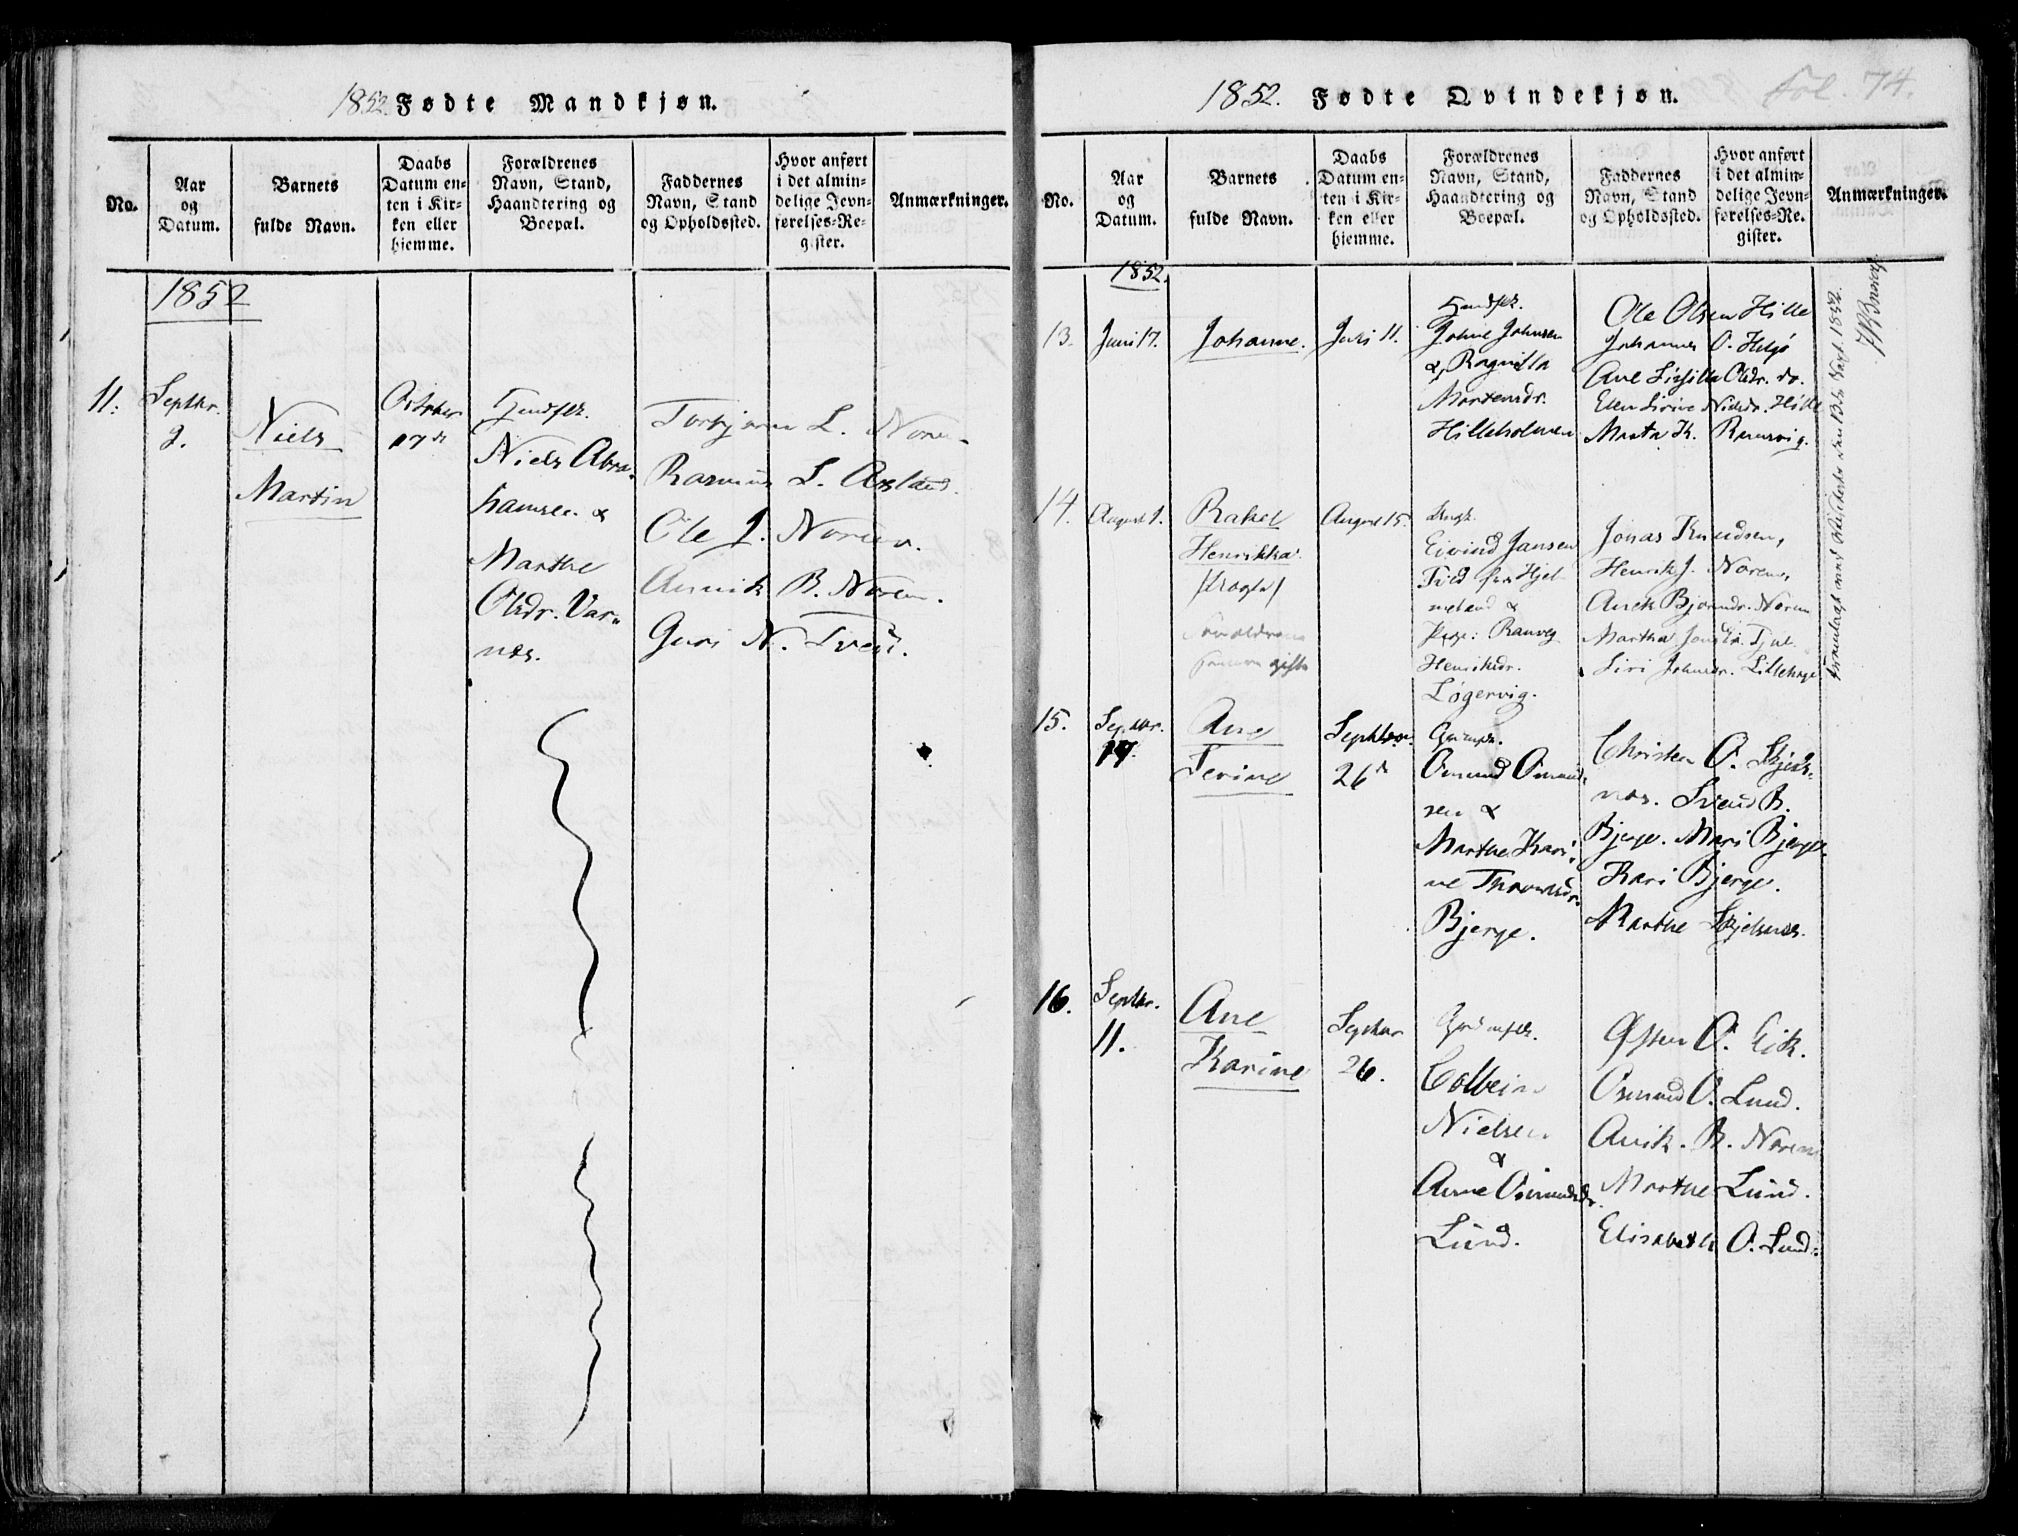 1852 Fødte Mandkjøn.
No.
Aar
og
Datum.
Barnets
fulde Navn.
Daabs
Datum en-
ten i Kir-
ken eller
hjemme.
Forældrenes
Navn, Stand,
Haandtering og
Boepæl.
Faddernes
Navn, Stand
og Opholdssted.
Hvor anført
i det almin-
delige Jevn-
førelses-Re-
gister.
Anmærkninger.
1852
11.
Septbr.
2.
Niels
Martin
October
17de
Niels Abra-
hamsen &
Marthe
Olsdr. Var-
næs.
Torbjørn L. Norem
Rasmus L. Assland.
Ole J. Norem.
Annik B. Norem.
Guri N. Tveit.
1852. Fødte Qvindekjøn. Fol. 74.
No.
Aar
og
Datum.
Barnets
fulde Navn.
Daabs
Datum en-
ten i Kir-
ken eller
hjemme.
Forældrenes
Navn, Stand,
Haandtering og
Boepæl.
Faddernes
Navn, Stand
og Opholdssted.
Hvor anført
i det almin-
delige Jevn-
førelses-Re-
gister.
Anmærkninger.
1852.
13.
Juni 17.
Johanne.
Juli 11.
Johne Johnsen
& Ragnilla
Mortensdr.
Hilleholmen
Ole Olsen Hille
Johannes O. Helgø
Ane Sissilla Olsdr. do.
Elen Sirine Nielsdr. Hille
Marta K. Ramsvig.
14.
August 1.
Rakel
Henrikka
August 15.
Eivind Jansen
Tved fra Hjel-
meland &
Pige: Ranveg
Henriksdr.
Løgervig.
Jonas Knudsen,
Henrik J. Norem,
Anek Bjørnsdr. Norem
Martha
Siri Johnsdr.
15.
Septbr.
17.
Ane
Serine
Septbr.
26de
Osmund Osmund-
sen &
Marthe Kari-
ne Thomasdr.
Bjerge.
Christen O. Skjels-
næs. Svend B.
Bjerge. Mari Bjerge.
Kari Bjerge.
Marthe Skjelsnæs.
16.
Septbr.
11.
Ane
Karine
Septbr
26.
Colbein
Nielsen
&
Anne Osmundsdr.
Lund.
Østen O. Eik.
Osmund O. Lund.
Anik. B. Norem
Marthe Lund.
Elisabeth O. Lund.